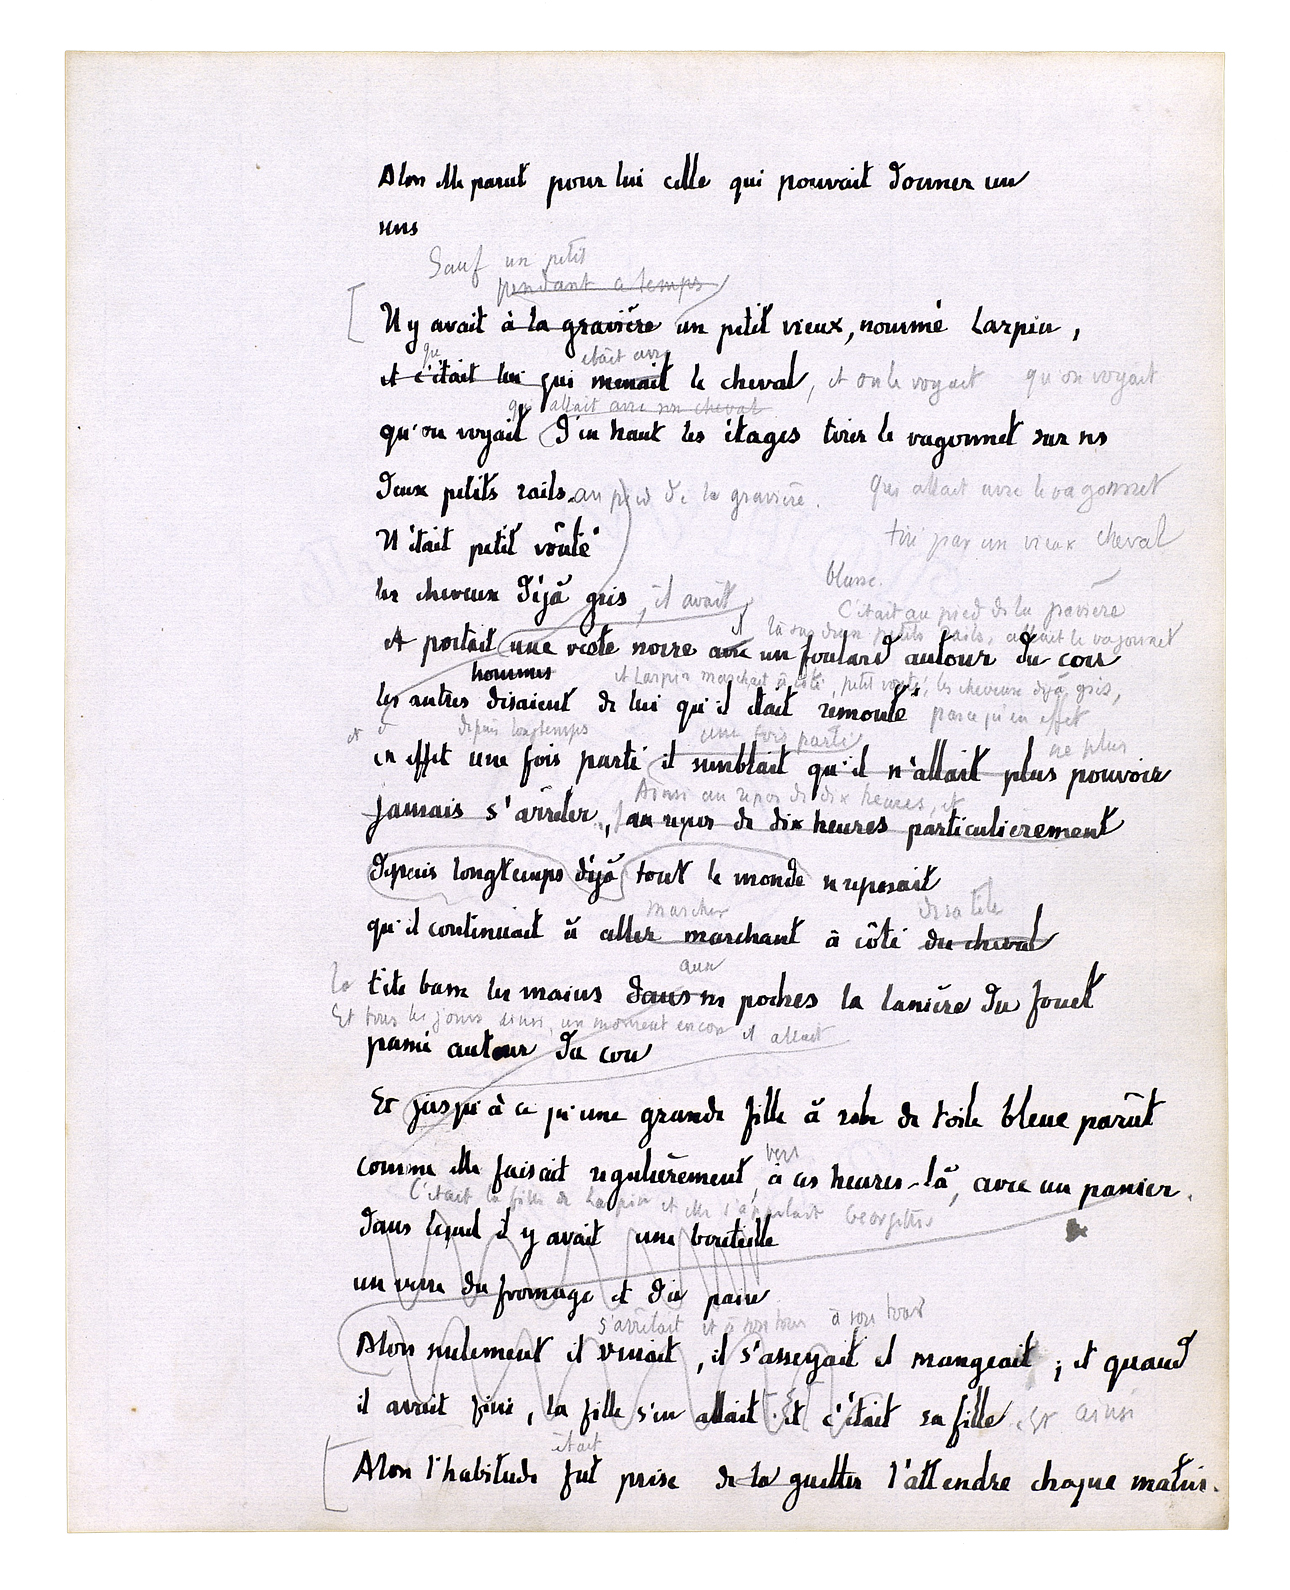 Alors elle parut pour lui celle qui pouvait donner un
sens
Sauf un petit
pendant ce temps
Il y avait à la gravière un petit vieux, nommé Larpin,
qu' était avec
et c'était lui qui menait le cheval, et on le voyait qu'on voyait
qui allait avec son cheval
qu'on voyait d'en haut les étages tirer le vagonnet sur ses
deux petits rails au pied de la gravière. qui allait avec le vagonnet
Il était petit voûté tiré par un vieux cheval
blasse.
les cheveux déjà gris, il avait C'était au pied de la gravière
il là sur deux petits rails, allait le vagonnet
et portait une veste noire avec un foulard autour du cou
hommes et Larpin marchait à côté, petit voûté, les cheveux déjà gris,
les autres disaient de lui qu'il était remonté parce qu'en effet
et depuis longtemps une fois parti ne plus
en effet une fois parti il semblait qu'il n'allait plus pouvoir
Ainsi au repos de dix heures, et
jamais s'arrêter, au repos de dix heures particulièrement
depuis longtemps déjà tout le monde se reposait
marcher de sa tête
qu'il continuait à aller marchant à côté du cheval
aux
la tête basse les mains dans ses poches la lanière du fouet
Et tous les jours ainsi, un moment encore il allait
passé autour du cou
Et jusqu'à ce qu'une grande fille à robe de toile bleue parût
vers
comme elle faisait régulièrement, à ces heures-là, avec un panier.
C'était la fille de Larpin et elle s'appelait Georgette
dans lequel il y avait une bouteille
un verre du fromage et du pain
s'arrêtait et à son tour à son tour
Alors seulement il venait, il s'asseyait il mangeait ; et quand
il avait fini, la fille s'en allait. Et c'était sa fille. Et ainsi
était
Alors l'habitude fut prise de la guetter l'attendre chaque matin.